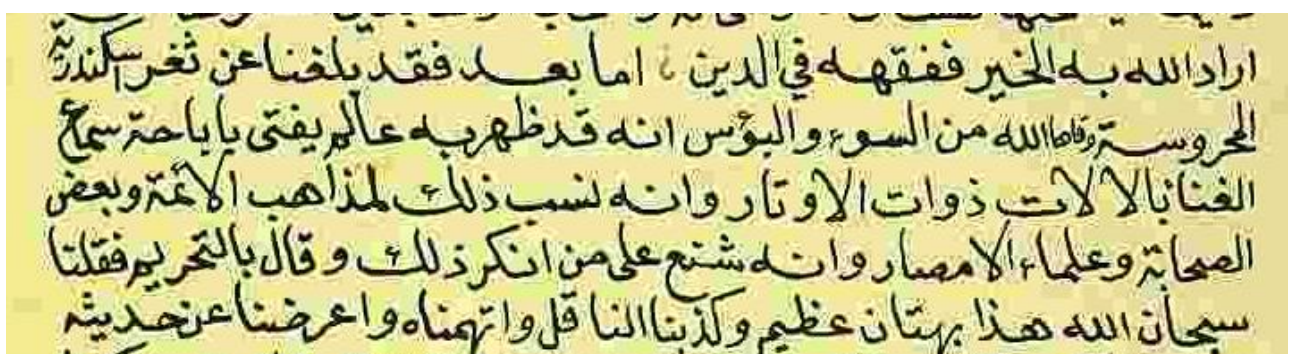 اراد الله به الخير ففقهه في الدين اما بعد فقد بلغنا عن ثغر اسكندرية
المحروسة وقاها الله من السوء والبؤس انه قد ظهر به عالم يفتى باباحة سماع
الغنا بالالات ذوات الاوتار وانه نسب ذلك لمذاهب الائمة وبعض
الصحابة وعلماء الامصار وانه شنع على من انكر ذلك وقال بالتحريم فقلنا
سبحان الله هذا بهتان عظيم وكذبنا الناقل واتهمناه واعرضنا عن حديثه